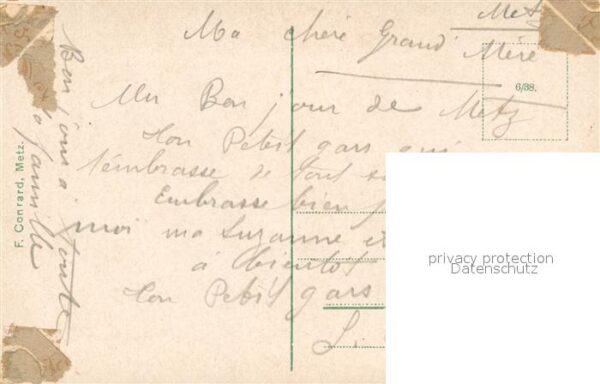 Metz
Ma chère Grand Mère
6/38.
Un Bon jour de Metz
Ton Petit gars qui
t'embrasse de tout
Embrasse bien
moi ma Suzanne et
à bientot
Ton Petit gars
Bon jour a toute
la famille
F. Conrard, Metz.
privacy protection
Datenschutz